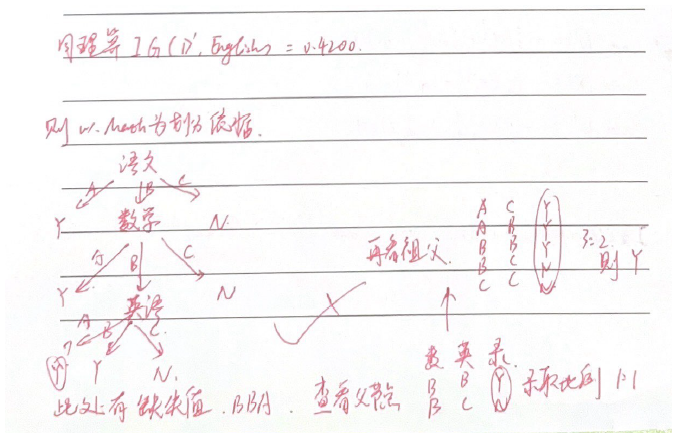 同理算 IG(D', English) = 0.4200.
则 以 Math 为划分依据.
语文
A B C
Y 数学 N.
A B C
Y 英语 N
A B C
Y Y N.
此处有缺失值. BBA. 查看父节点
数 英 录
B B Y
B C N
录取比例 1:1
再看祖父.
A C Y
A B Y
B B Y
B C N
C C N
3:2
则 Y